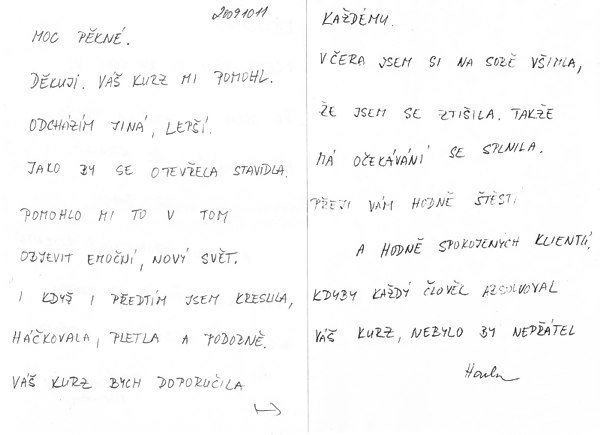 20091011
MOC PĚKNÉ.
DĚKUJI. VÁŠ KURZ MI POMOHL.
ODCHÁZÍM JINÁ, LEPŠÍ.
JAKO BY SE OTEVŘELA STAVIDLA.
POMOHLO MI TO V TOM
OBJEVIT EMOČNÍ, NOVÝ SVĚT.
I KDYŠ I PŘEDTÍM JSEM KRESLILA,
HÁČKOVALA, PLETLA A PODOBNĚ.
VÁŠ KURZ BYCH DOPORUČILA
KAŽDÉMU.
VČERA JSEM SI NA SOBĚ VŠIMLA,
ŽE JSEM SE ZTIŠILA. TAKŽE
MÁ OČEKÁVÁNÍ SE SPLNILA.
PŘEJI VÁM HODNĚ ŠTĚSTÍ
A HODNĚ SPOKOJENÝCH KLIENTŮ,
KDYBY KAŽDÝ ČLOVĚK ABSOLVOVAL
VÁŠ KURZ, NEBYLO BY NEPŘÁTEL